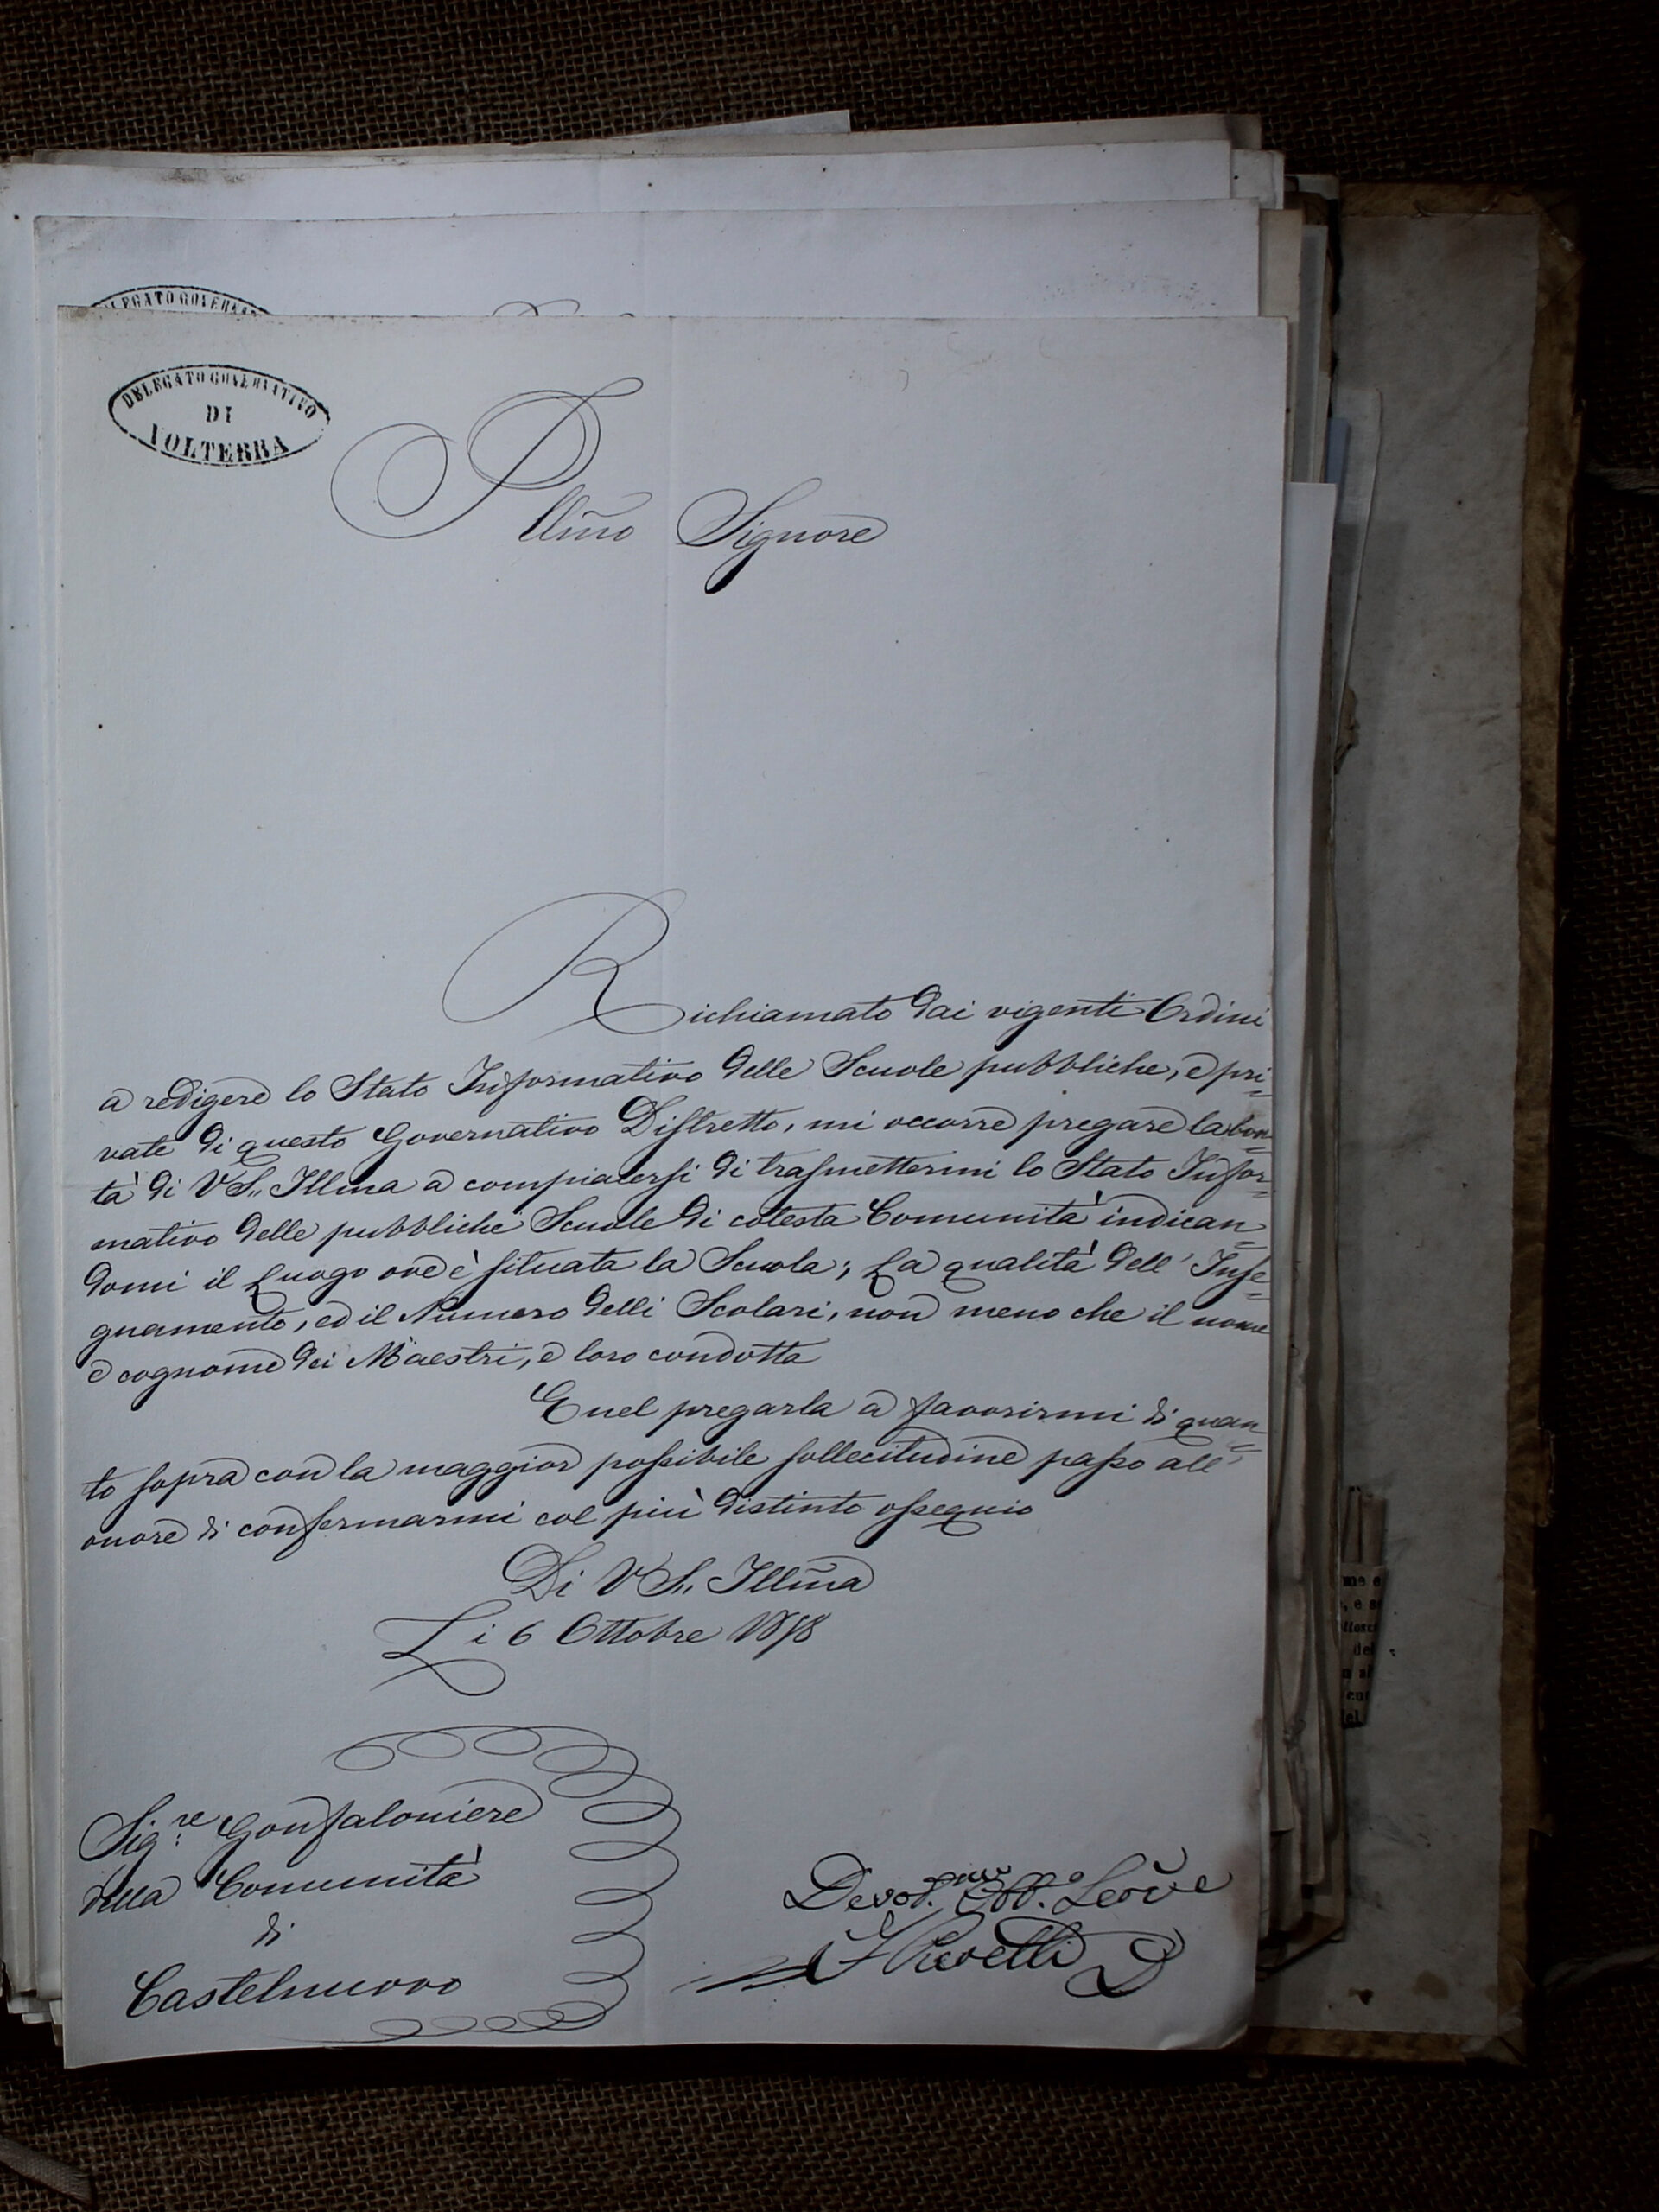 DELEGATO GOVERNATIVO
DELEGATO GOVERNATIVO
DI
VOLTERRA
Illmo Signore
Richiamato dai vigenti Ordini
a redigere lo Stato Informativo delle Scuole pubbliche, e pri=
vate di questo Governativo Distretto, mi occorre pregare la bon=
tà di V S. Illma a compiacersi di trasmettermi lo Stato Infor=
mativo delle pubbliche Scuole di cotesta Comunità indican=
domi il Luogo ove è situata la Scuola; La qualità dell' Inse=
gnamento, ed il Numero delli Scolari, non meno che il nome
e cognome dei Maestri, e loro condotta
E nel pregarla a favorirmi di quan=
to sopra con la maggior possibile sollecitudine passo all'
onore di confermarmi col più distinto ossequio
Di V S. Illma
Li 6 Ottobre 1858
Sig:re Gonfaloniere
della Comunità
di
Castelnuovo
Devot.mo Obb.o Serve